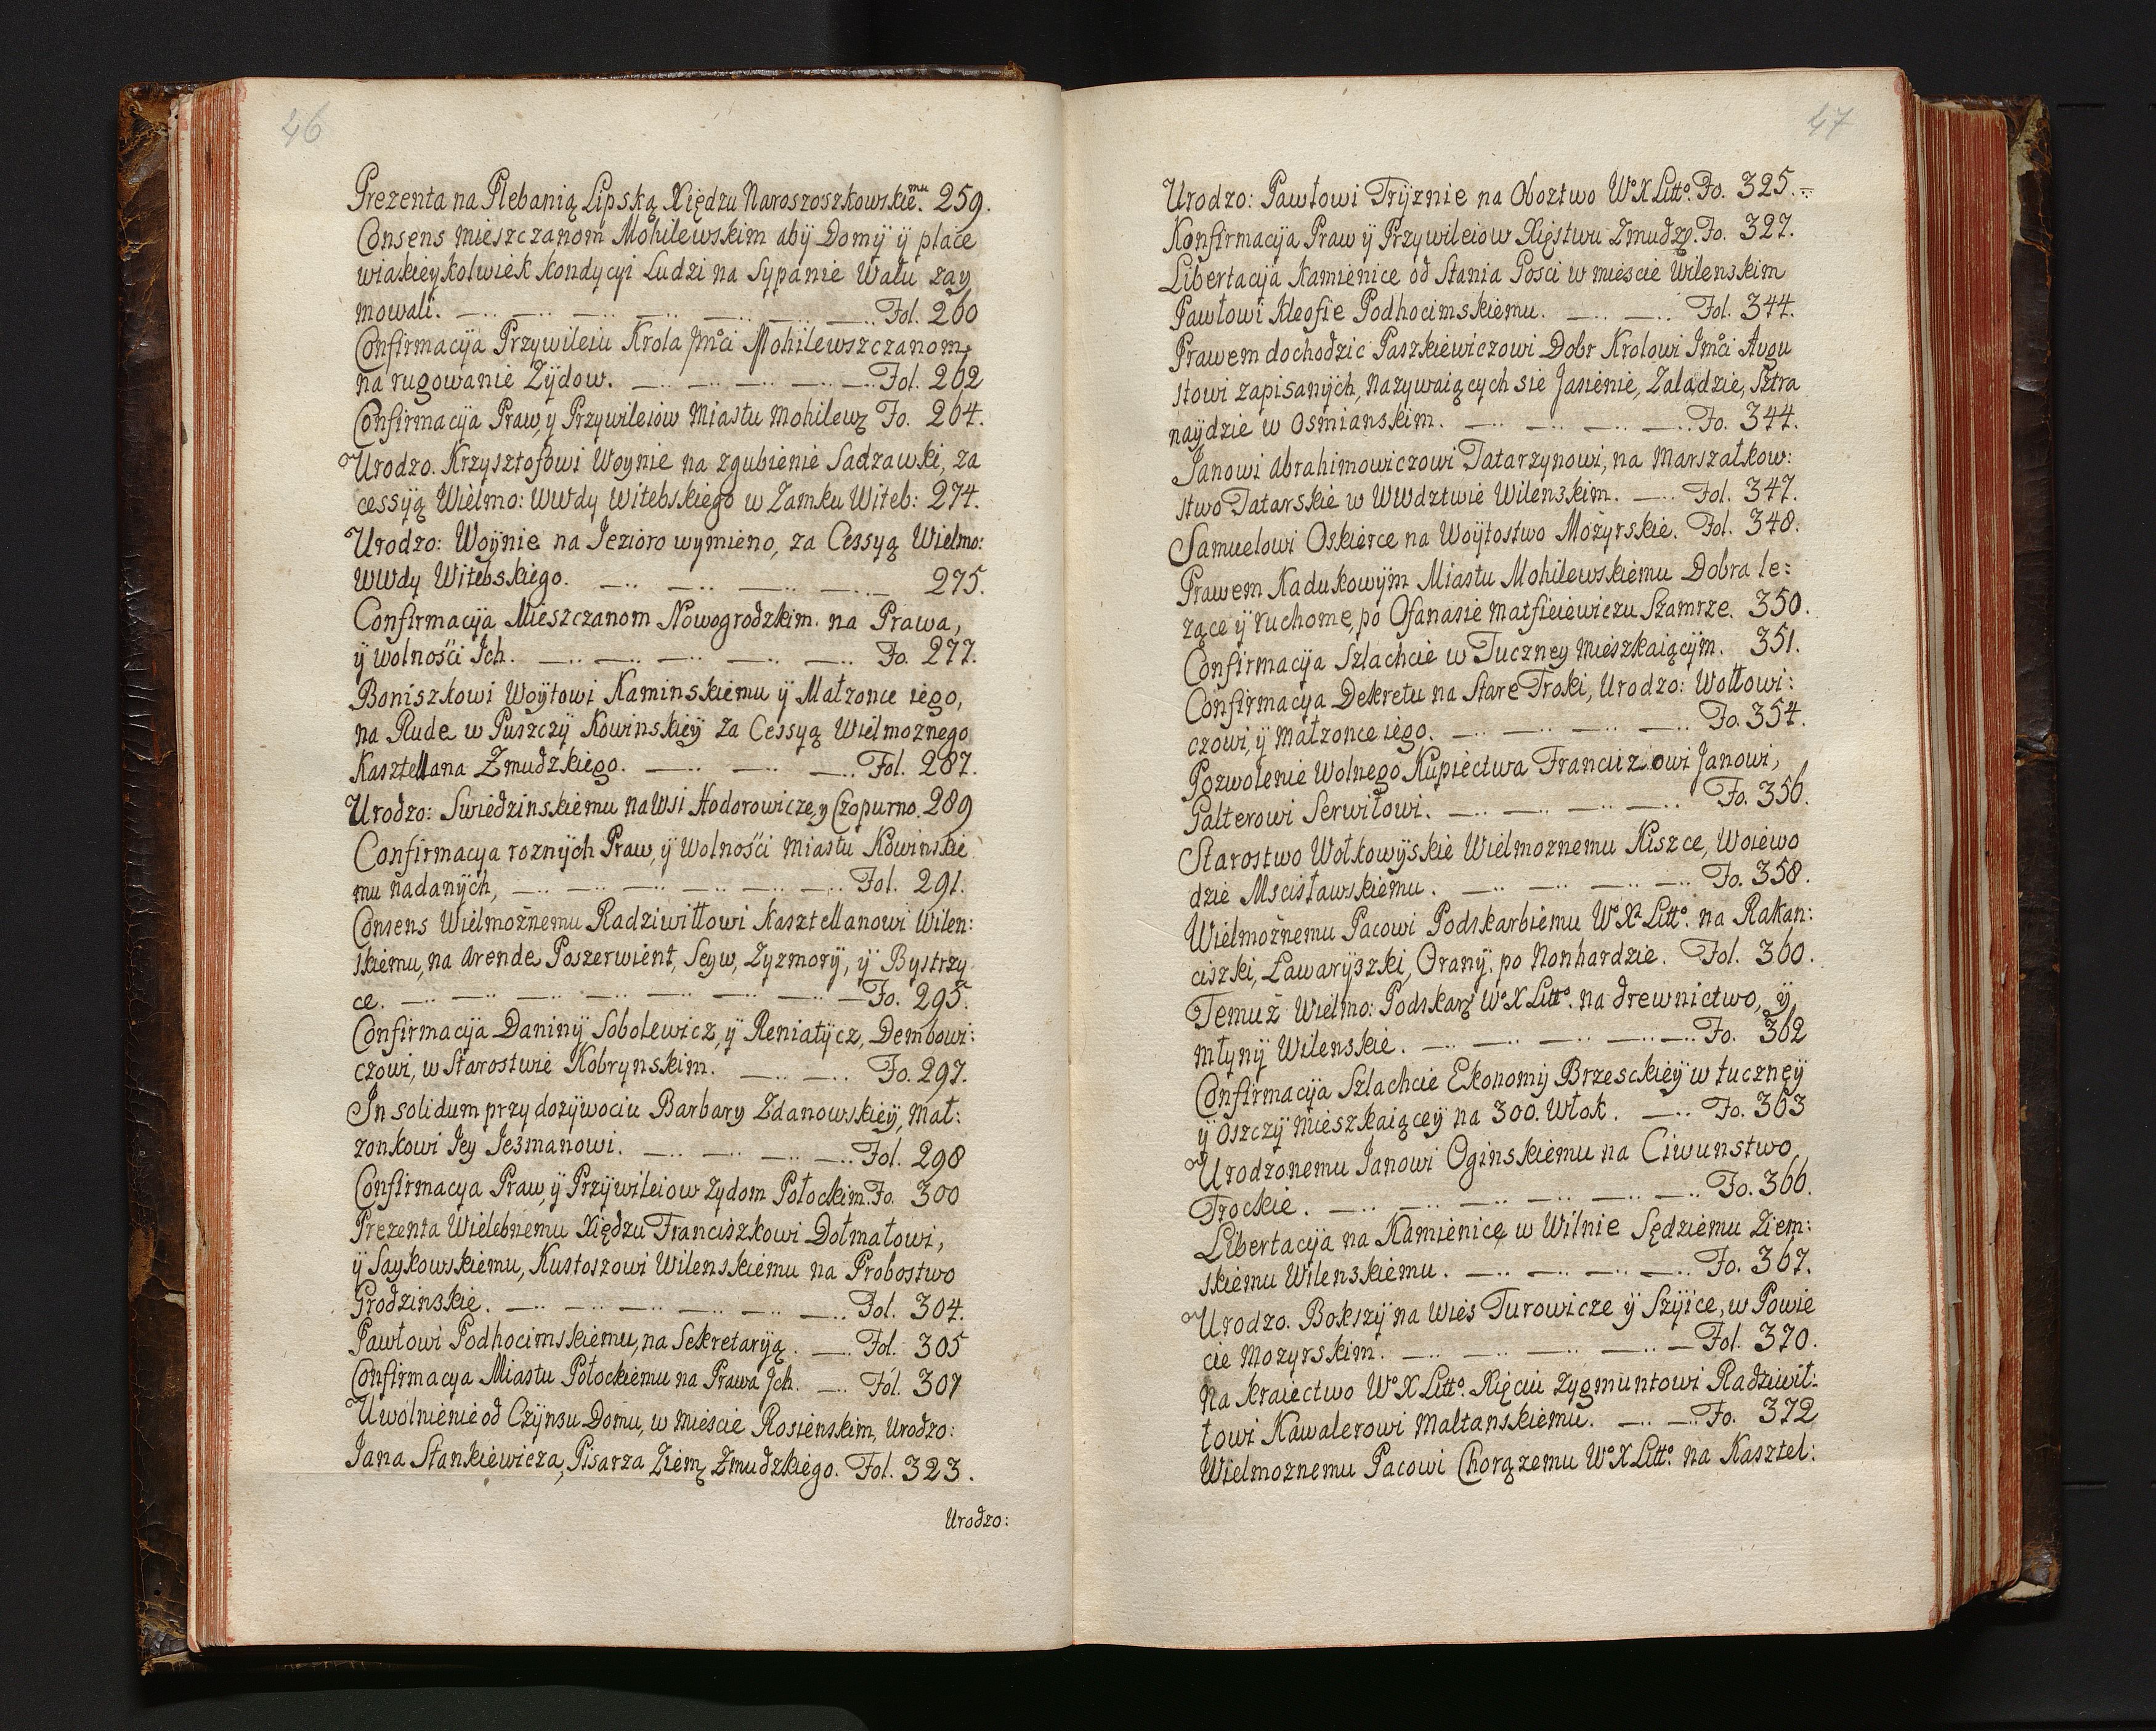 46
Prezenta na Plebanią Lipską Xiędzu Naroszoszkowskie.mu 259.
Consens mieszczanom Mohilewskim abÿ Domÿ ÿ place
wiakieykolwiek kondycyi Ludzi na Sypanie Wału zay
mowali. Fol. 260
Confirmacÿa Przywileiu Krola Jmci Mohilewszczanom,
na rugowanie Zÿdow. Fol. 262
Confirmacÿa Praw, y Przywileiow Miastu Mohilew Fo. 264.
Urodzo. Krzysztofowi Woynie na zgubienie Sadzawki, za
cessÿą Wielmo: WWdy Witebskiego w Zamku Witeb: 274.
Urodzo: Woÿnie na Jezioro wymieno, za Cessyą Wielmo:
WWdy Witebskiego. 275.
Confirmacÿa Mieszczanom Nowogrodzkim. na Prawa,
ÿ wolności Jch. Fo. 277.
Boniszkowi Woÿtowi Kaminskiemu ÿ Małzonce iego,
na Rude w Puszczÿ Kowinskieÿ za Cessyą Wielmoznego
Kasztellana Zmudzkiego. Fol. 287.
Urodzo: Swiedzinskiemu na Wsi Hodorowicze, y Czopurno. 289
Confirmacya roznÿch Praw, ÿ Wolności Miastu Kowinskie
mu nadanÿch, Fol. 291.
Consens Wielmożnemu Radziwiłłowi Kasztellanowi Wilen:
skiemu, na Arende Poszerwient, Seyw, Zyzmorÿ, ÿ Bystrzy
ce. Fo. 295.
Confirmacÿa Daninÿ, Sobolewicz, ÿ Reniatÿcz, Dembowi:
czowi, w Starostwie Kobrynskim. Fo. 297.
In solidum przy dozÿwociu Barbary Zdanowskieÿ, Mał:
zonkowi Jey Jeśmanowi. Fol. 298
Confirmacya Praw, ÿ Przÿwileiow Zydom Połockim. Fo. 300
Prezenta Wielebnemu Xiędzu Franciszkowi Dołmatowi,
ÿ Saykowskiemu, Kustoszowi Wilenskiemu na Probostwo
Grodzinskie. Fol. 304.
Pawłowi Podhocimskiemu, na Sekretaryą. Fol. 305
Confirmacya Miastu Połockiemu na Prawa Jch. Fol. 307
Uwolnienie od Czÿnszu Domu, w mieście Rosienskim, Urodzo:
Jana Stankiewicza, Pisarza Ziem Zmudzkiego. Fol. 323.
Urodzo:
47
Urodzo: Pawłowi Trÿznie na Oboztwo Wo X Litto. Fo. 325.
Konfirmacÿa Praw ÿ Przywileiow Xięstwu Zmudz. Fo. 327.
Libertacÿa Kamienice od Stania Gosci w mieście Wilenskim
Pawłowi Kleofie Podhocimskiemu. Fol. 344.
Prawem dochodzic Paszkiewiczowi Dobr Krolowi Jmci Augu
stowi zapisanÿch, Nazywaiących sie Jasienie, Zaladzie, Sztra
naÿdzie w Osmianskim. Fo. 344.
Janowi Abrahimowiczowi Tatarzynowi, na Marszałkow:
stwo Tatarskie w WWdztwie Wilenskim. Fol. 347.
Samuelowi Oskierce na Woÿtostwo Mozyrskie. Fol. 348.
Prawem Kadukowÿm Miastu Mohilewskiemu Dobra le:
zące ÿ ruchome, po Ofanasie Matfieiewiczu Szamrze. 350.
Confirmacÿa Szlachcie w Tuczney mieszkaiącÿm. 351.
Confirmacya Dekretu na Stare Troki, Urodzo: Wołłowi:
czowi, ÿ małzonce iego. Fo. 354.
Pozwolenie Wolnego Kupiectwa Franciiziowi Janowi,
Palterowi Serwitowi. Fo. 356.
Starostwo Wołkowÿskie Wielmoznemu Kiszce, Woiewo
dzie Mscisławskiemu. Fo. 358.
Wielmożnemu Pacowi Podskarbiemu Wo Xa Litto. na Rakan:
ciszki, Lawarÿszki, Oranÿ. po Nonhardzie. Fol. 360.
Temuż Wielmo: Podskar Wo X Litto. na drewnictwo, ÿ
młynÿ Wilenskie. Fo. 362
Confirmacÿa Szlachcie Ekonomiÿ Brzesckieÿ w tuczneÿ
ÿ Oszczÿ mieszkaiąceÿ na 300. Włok. Fo. 363
Urodzonemu Janowi Oginskiemu na Ciwunstwo
Trockie. Fo. 366.
Libertacÿa na Kamienicę w Wilnie Sędziemu Ziem:
skiemu Wilenskiemu. Fo. 367.
Urodzo. Bokszÿ na wieś Turowicze ÿ Szÿice, w Powie
cie Mozyrskim. Fol. 370.
Na Kraiectwo Wo X Litto. Xięciu Zygmuntowi Radziwił:
łowi Kawalerowi Maltanskiemu. Fo. 372
Wielmoznemu Pacowi Chorązemu Wo X Litto. na Kasztel: